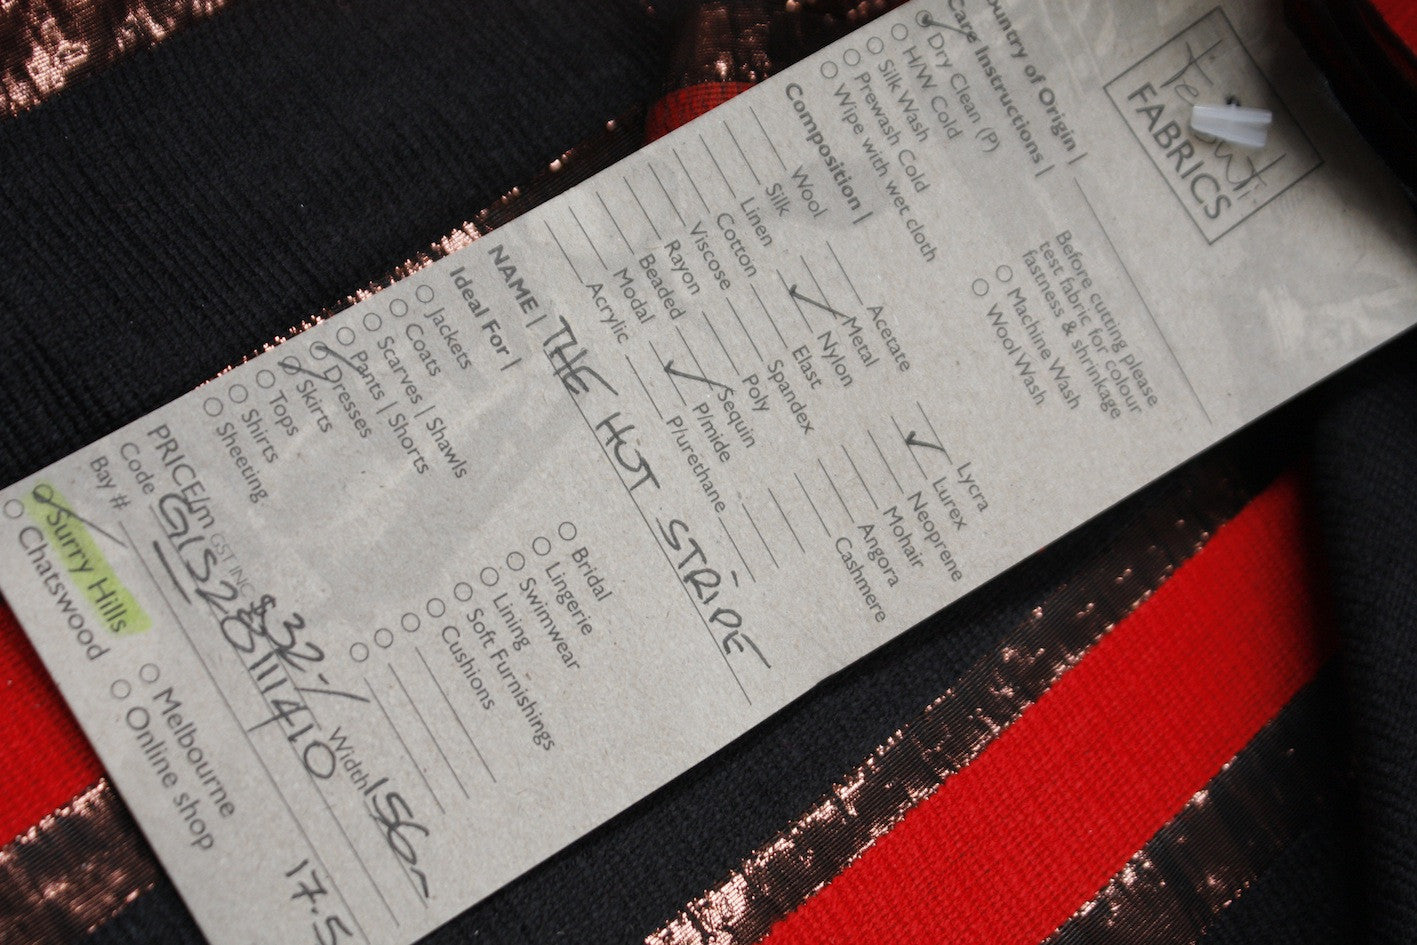 FABRICS
Country of Origin |
Care Instructions |
Dry Clean (P)
H/W Cold
Silk Wash
Prewash Cold
Wipe with wet cloth
Before cutting please
test fabric for colour
fastness & shrinkage
Machine Wash
Wool Wash
Composition |
Wool
Silk
Linen
Cotton
Viscose
Rayon
Beaded
Modal
Acrylic
Acetate
Metal
Nylon
Elast
Spandex
Poly
Sequin
P/mide
P/urethane
Lycra
Lurex
Neoprene
Mohair
Angora
Cashmere
NAME | THE HOT STRIPE
Ideal For |
Jackets
Coats
Scarves | Shawls
Pants | Shorts
Dresses
Skirts
Tops
Shirts
Sheeting
Bridal
Lingerie
Swimwear
Lining
Soft Furnishings
Cushions
PRICE/m GST INC $32-/ Width 150m
Code GIS28111410
Bay # 17.5
Surry Hills
Chatswood
Melbourne
Online shop